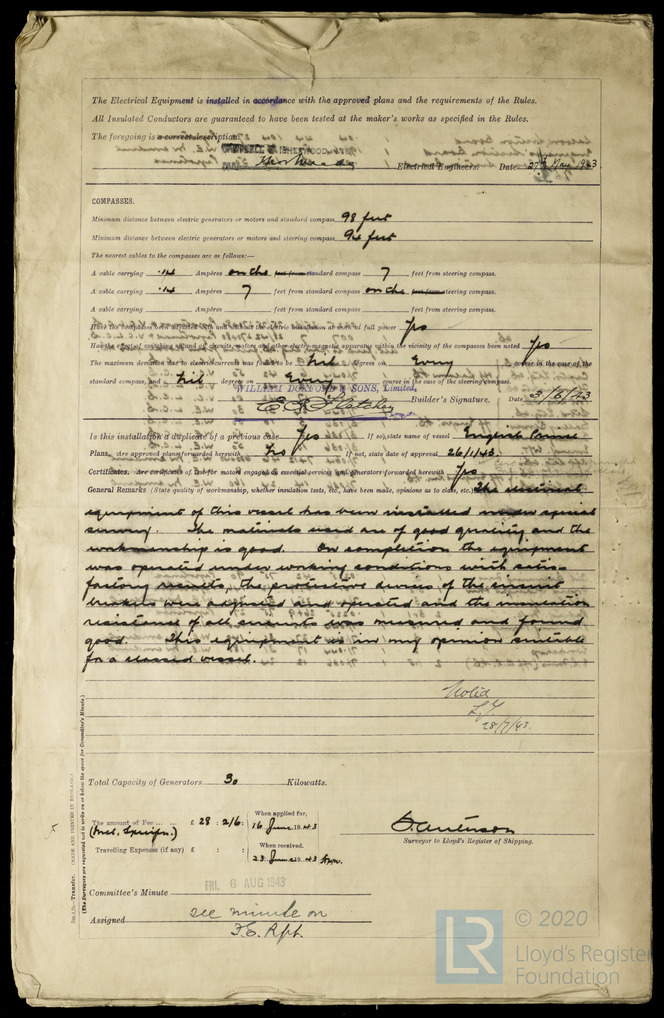 The Electrical Equipment is installed in accordance with the approved plans and the requirements of the Rules.
All Insulated Conductors are guaranteed to have been tested at the maker's works as specified in the Rules.
The foregoing is a correct description.
Electrical Engineers. Date 27th May 1943
COMPASSES.
Minimum distance between electric generators or motors and standard compass 98 feet
Minimum distance between electric generators or motors and steering compass 94 feet
The nearest cables to the compasses are as follows:—
A cable carrying .14 Ampères on the feet from standard compass 7 feet from steering compass.
A cable carrying .14 Ampères 7 feet from standard compass on the feet from steering compass.
A cable carrying Ampères feet from standard compass feet from steering compass.
Have the compasses been adjusted with and without the electric installation at work at full power Yes
Has the effect of switching on and off circuits, motors and other electro-magnetic apparatus within the vicinity of the compasses been noted Yes
The maximum deviation due to electric currents was found to be Nil degrees on Every course in the case of the
standard compass, and Nil degrees on Every course in the case of the steering compass.
WILLIAM DOXFORD & SONS, Limited,
E. G. Fletcher Builder's Signature. Date 3/6/43
Is this installation a duplicate of a previous case Yes If so, state name of vessel English Prince
Plans. Are approved plans forwarded herewith No If not, state date of approval 26/1/43.
Certificates. Are certificates of test for motors engaged on essential services and generators forwarded herewith Yes
General Remarks (State quality of workmanship, whether insulation tests, etc., have been made, opinions as to class, etc.) The electrical
equipment of this vessel has been installed under special
survey. The materials used are of good quality and the
workmanship is good. On completion the equipment
was operated under working conditions with satis-
factory results, the protective devices of the circuit
breakers were adjusted and operated and the insulation
resistance of all circuits was measured and found
good. This equipment is in my opinion suitable
for a classed vessel.
Noted
28/7/43.
Total Capacity of Generators 30 Kilowatts.
The amount of Fee ... ... £ 28 : 2/6 : When applied for, 16 June 1943
Travelling Expenses (if any) £ : : When received, 23 June 1943
Surveyor to Lloyd's Register of Shipping.
Committee's Minute FRI. 6 AUG 1943
Assigned see minute on
F.E. Rpt.
5m.4.39.—Transfer. (MADE AND PRINTED IN ENGLAND.)
(The Surveyors are requested not to write on or below the space for Committee's Minute.)
LR © 2020
Lloyd's Register
Foundation